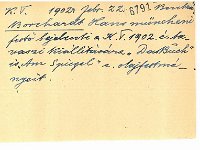 K.T. 1902. febr. 22. 6791
Borchardt Hans müncheni
festő bejelenti a K.T. 1902. évi ta-
vaszi kiállítására „Das Buch"
is „Am Spiegel" c. olajfestmé-
nyeit.